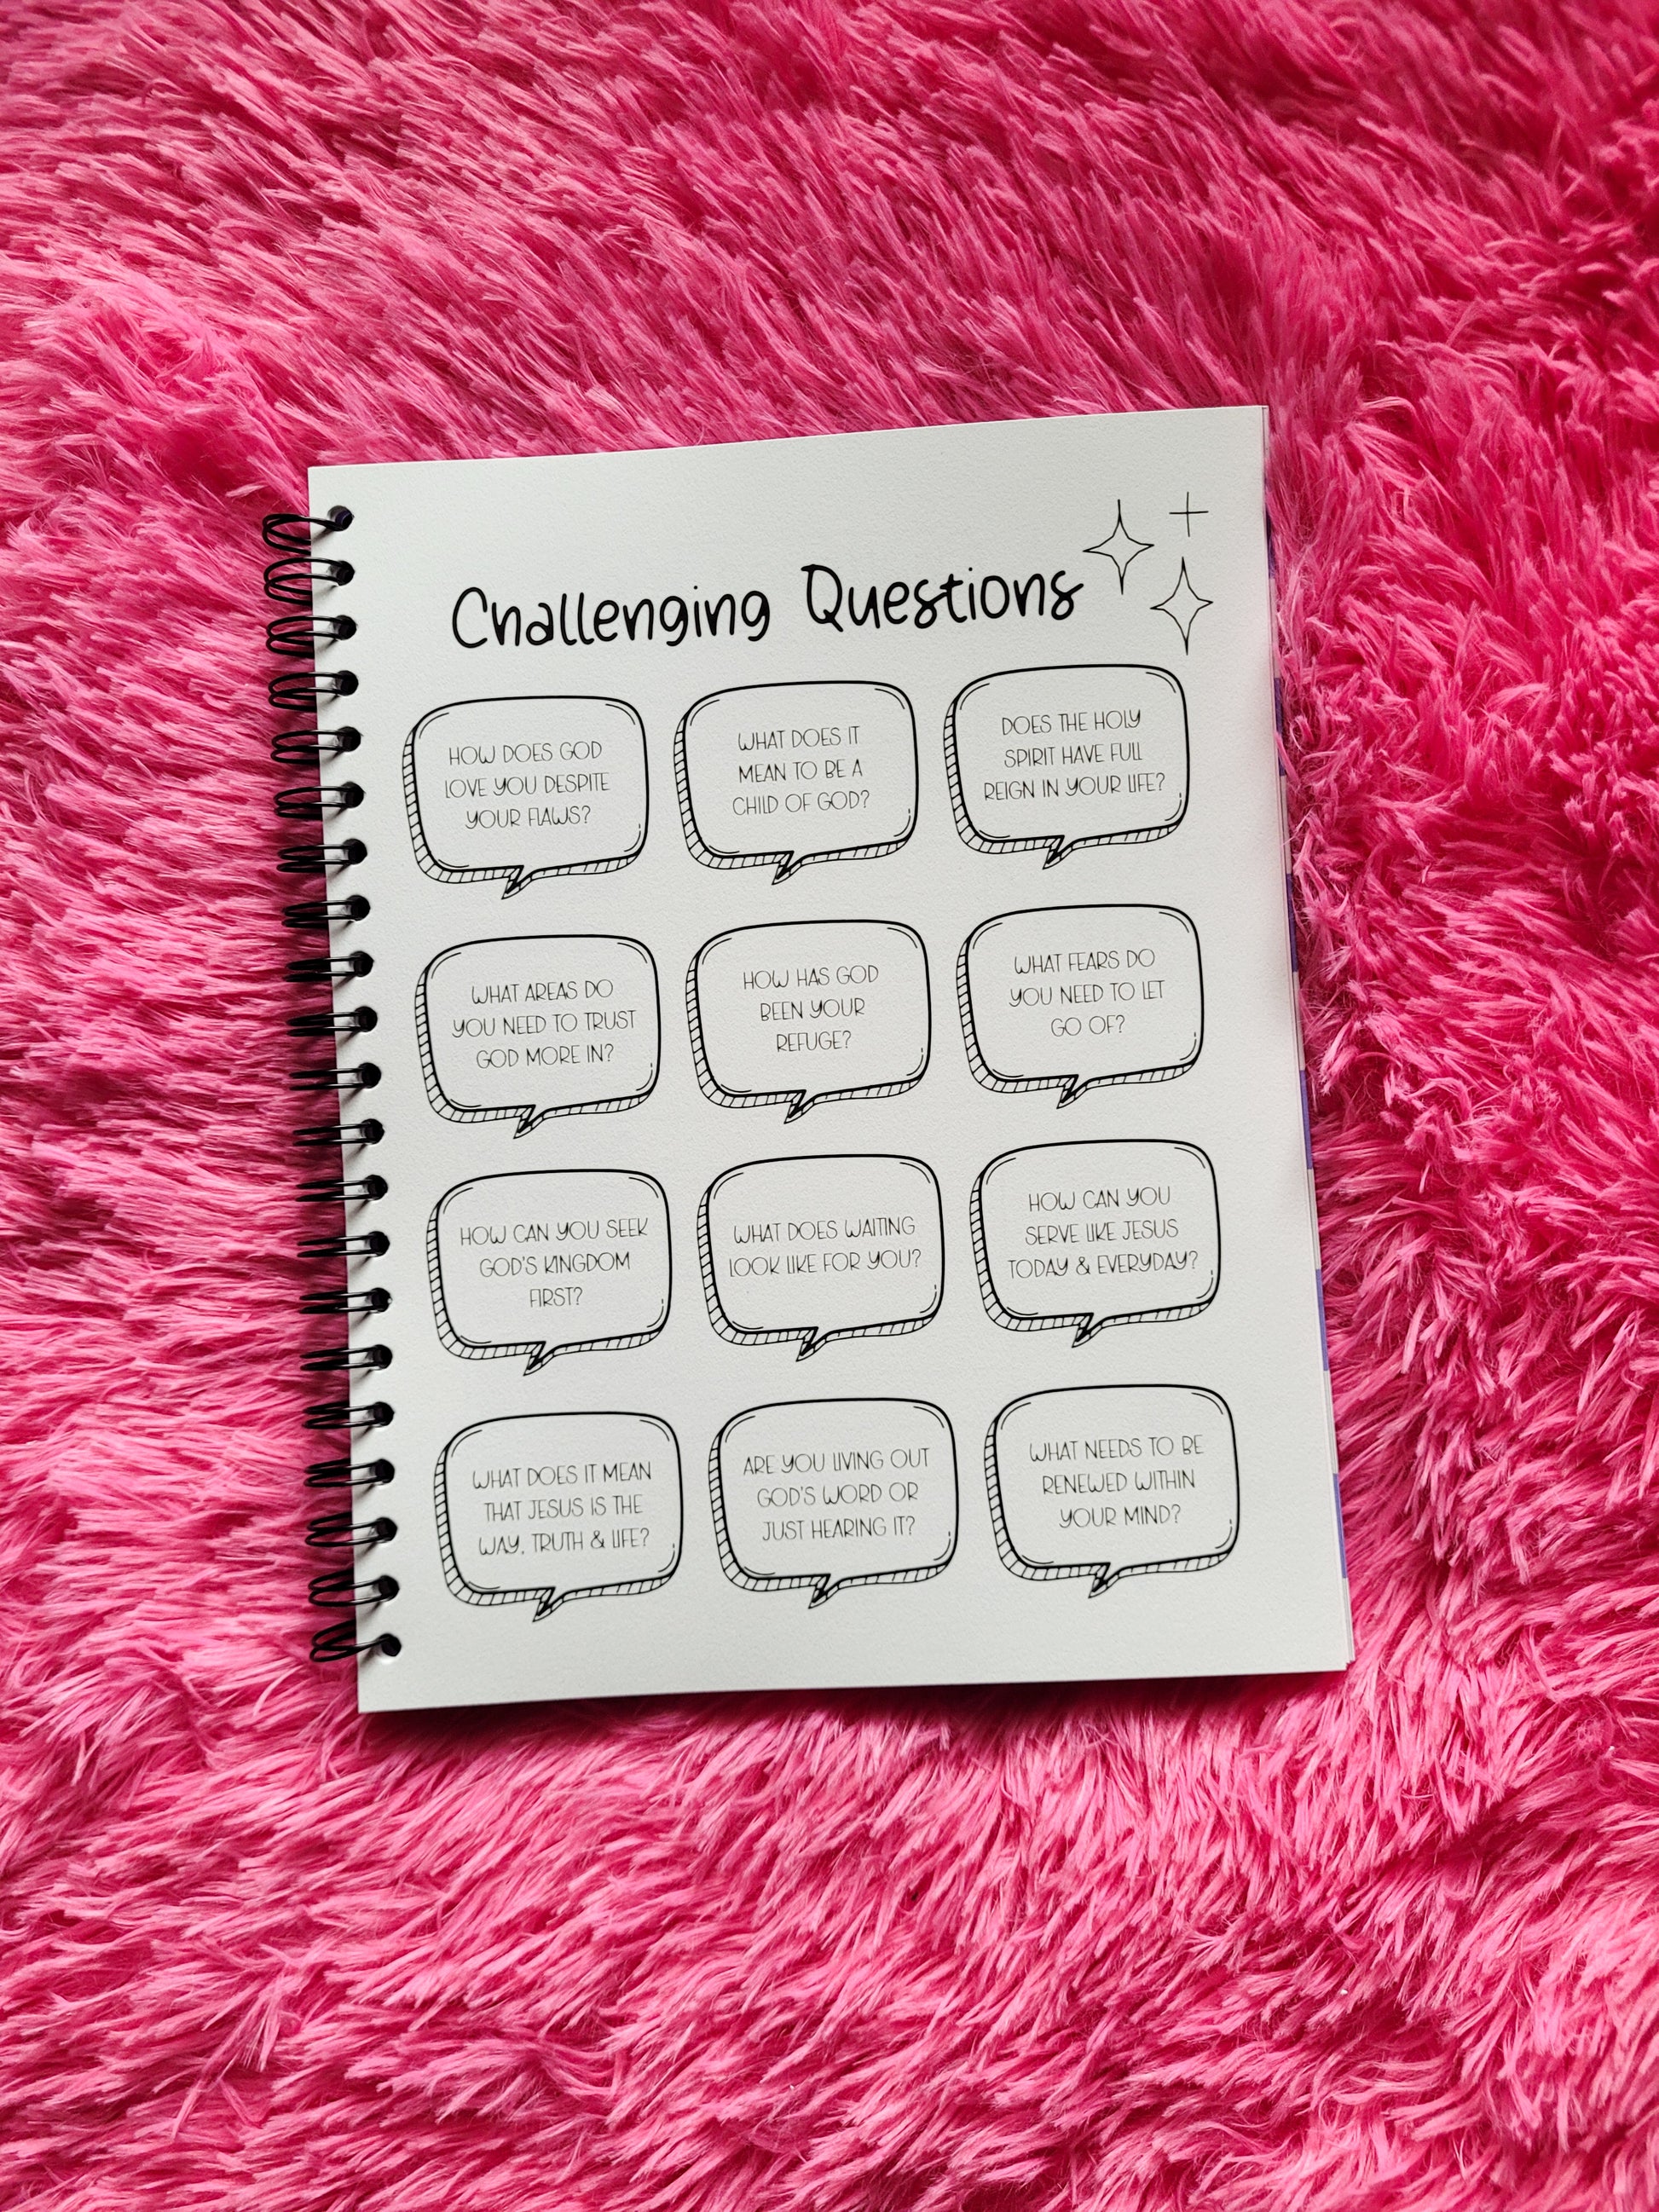 Challenging Questions
HOW DOES GOD
LOVE YOU DESPITE
YOUR FLAWS?
WHAT DOES IT
MEAN TO BE A
CHILD OF GOD?
DOES THE HOLY
SPIRIT HAVE FULL
REIGN IN YOUR LIFE?
WHAT AREAS DO
YOU NEED TO TRUST
GOD MORE IN?
HOW HAS GOD
BEEN YOUR
REFUGE?
WHAT FEARS DO
YOU NEED TO LET
GO OF?
HOW CAN YOU SEEK
GOD'S KINGDOM
FIRST?
WHAT DOES WAITING
LOOK LIKE FOR YOU?
HOW CAN YOU
SERVE LIKE JESUS
TODAY & EVERYDAY?
WHAT DOES IT MEAN
THAT JESUS IS THE
WAY, TRUTH & LIFE?
ARE YOU LIVING OUT
GOD'S WORD OR
JUST HEARING IT?
WHAT NEEDS TO BE
RENEWED WITHIN
YOUR MIND?